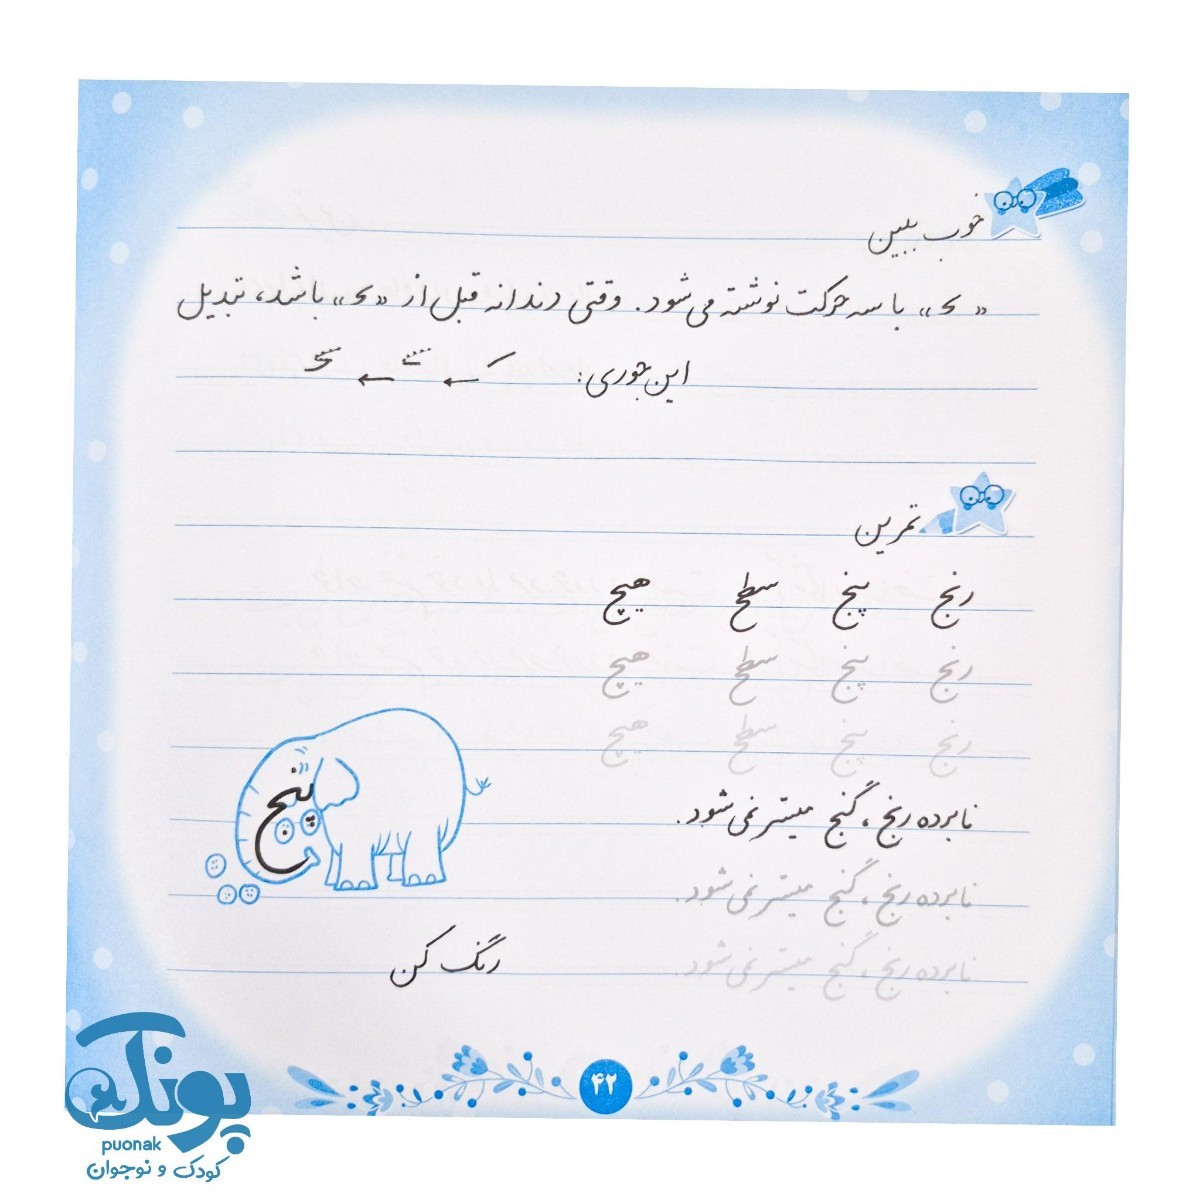 خوب ببین
«ﺤ» با سه حرکت نوشته می‌شود. وقتی دندانه قبل از «ﺤ» باشد، تبدیل
این جوری:
تمرین
رنج پنج سطح هیچ
رنج پنج سطح هیچ
رنج پنج سطح هیچ
نابرده رنج، گنج میسّر نمی‌شود.
نابرده رنج، گنج میسّر نمی‌شود.
نابرده رنج، گنج میسّر نمی‌شود.
پنج
رنگ کن
۴۲
پونک
puonak
کودک و نوجوان